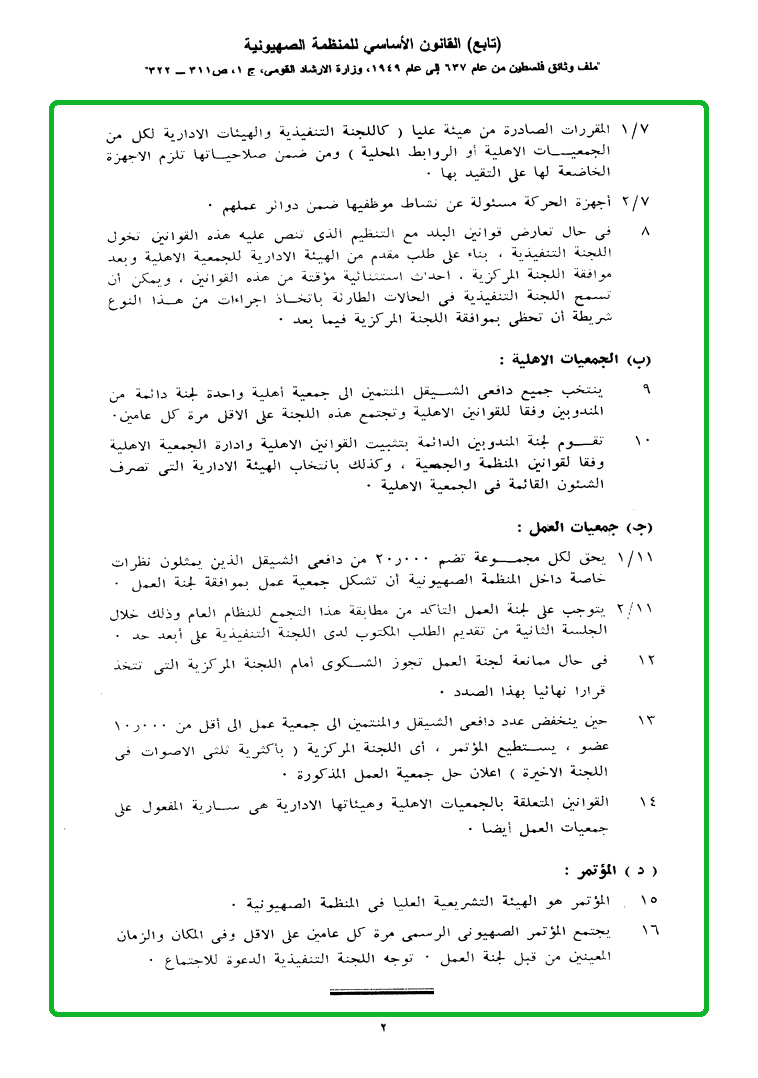 (تابع) القانون الأساسي للمنظمة الصهيونية
"ملف وثائق فلسطين من عام ٦٣٧ إلى عام ١٩٤٩، وزارة الارشاد القومى، ج ١، ص٣١١ – ٣٢٢"
١/٧ المقررات الصادرة من هيئة عليا ( كاللجنة التنفيذية والهيئات الادارية لكل من
الجمعيات الاهلية أو الروابط المحلية ) ومن ضمن صلاحياتها تلزم الاجهزة
الخاضعة لها على التقيد بها ٠
٢/٧ أجهزة الحركة مسئولة عن نشاط موظفيها ضمن دوائر عملهم ٠
٨ فى حال تعارض قوانين البلد مع التنظيم الذى تنص عليه هذه القوانين تخول
اللجنة التنفيذية ، بناء على طلب مقدم من الهيئة الادارية للجمعية الاهلية وبعد
موافقة اللجنة المركزية ، احداث استثنائية مؤقتة من هذه القوانين ، ويمكن أن
تسمح اللجنة التنفيذية فى الحالات الطارئة باتخاذ اجراءات من هذا النوع
شريطة أن تحظى بموافقة اللجنة المركزية فيما بعد ٠
(ب) الجمعيات الاهلية :
٩ ينتخب جميع دافعى الشيقل المنتمين الى جمعية أهلية واحدة لجنة دائمة من
المندوبين وفقا للقوانين الاهلية وتجتمع هذه اللجنة على الاقل مرة كل عامين٠
١٠ تقوم لجنة المندوبين الدائمة بتثبيت القوانين الاهلية وادارة الجمعية الاهلية
وفقا لقوانين المنظمة والجمعية ، وكذلك بانتخاب الهيئة الادارية التى تصرف
الشئون القائمة فى الجمعية الاهلية ٠
(جـ) جمعيات العمل :
١/١١ يحق لكل مجموعة تضم ٢٠ر٠٠٠ من دافعى الشيقل الذين يمثلون نظرات
خاصة داخل المنظمة الصهيونية أن تشكل جمعية عمل بموافقة لجنة العمل ٠
٢/١١ يتوجب على لجنة العمل التأكد من مطابقة هذا التجمع للنظام العام وذلك خلال
الجلسة الثانية من تقديم الطلب المكتوب لدى اللجنة التنفيذية على أبعد حد ٠
١٢ فى حال ممانعة لجنة العمل تجوز الشكوى أمام اللجنة المركزية التى تتخذ
قرارا نهائيا بهذا الصدد ٠
١٣ حين ينخفض عدد دافعى الشيقل والمنتمين الى جمعية عمل الى أقل من ١٠ر٠٠٠
عضو ، يستطيع المؤتمر ، أى اللجنة المركزية ( بأكثرية ثلثى الاصوات فى
اللجنة الاخيرة ) اعلان حل جمعية العمل المذكورة ٠
١٤ القوانين المتعلقة بالجمعيات الاهلية وهيئاتها الادارية هى سارية المفعول على
جمعيات العمل أيضا ٠
( د ) المؤتمر :
١٥ المؤتمر هو الهيئة التشريعية العليا فى المنظمة الصهيونية ٠
١٦ يجتمع المؤتمر الصهيونى الرسمى مرة كل عامين على الاقل وفى المكان والزمان
المعينين من قبل لجنة العمل ٠ توجه اللجنة التنفيذية الدعوة للاجتماع ٠
٢